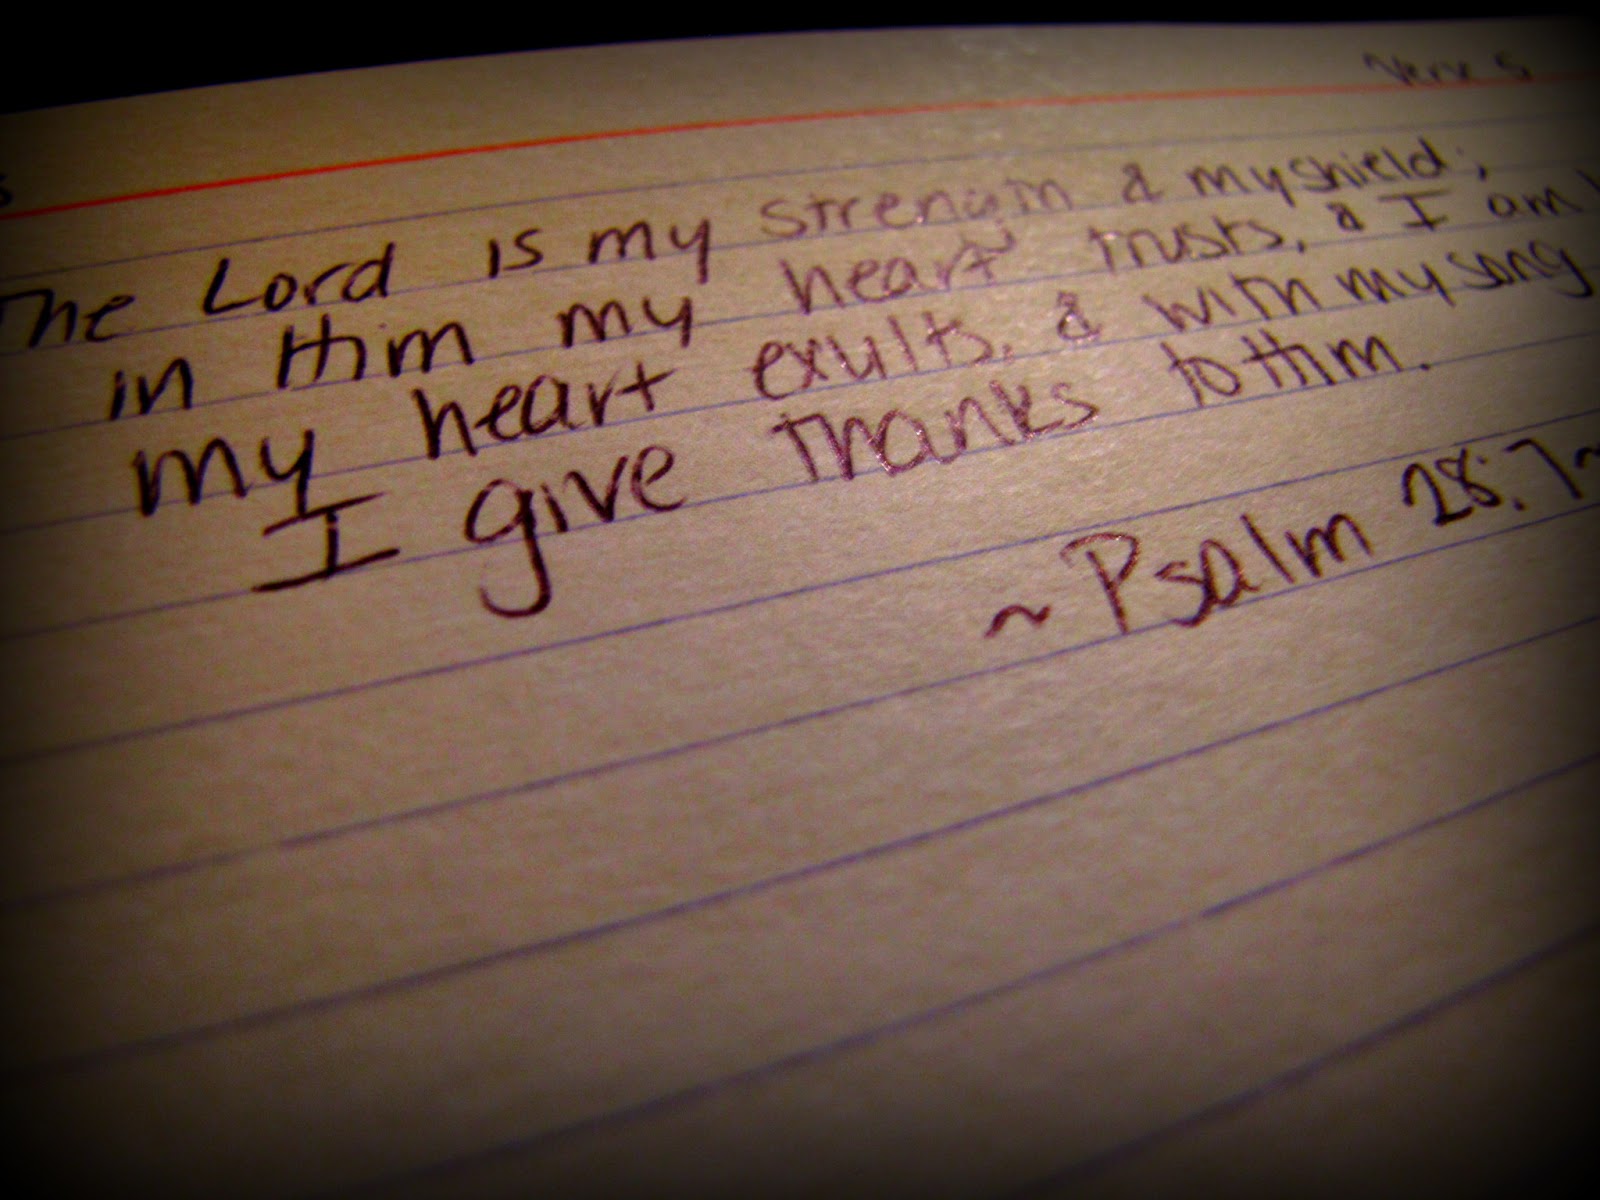 Verse 5
The Lord is my strength & my shield;
in Him my heart trusts, & I am
my heart exults, & with my song
I give thanks to Him.
~ Psalm 28:7~